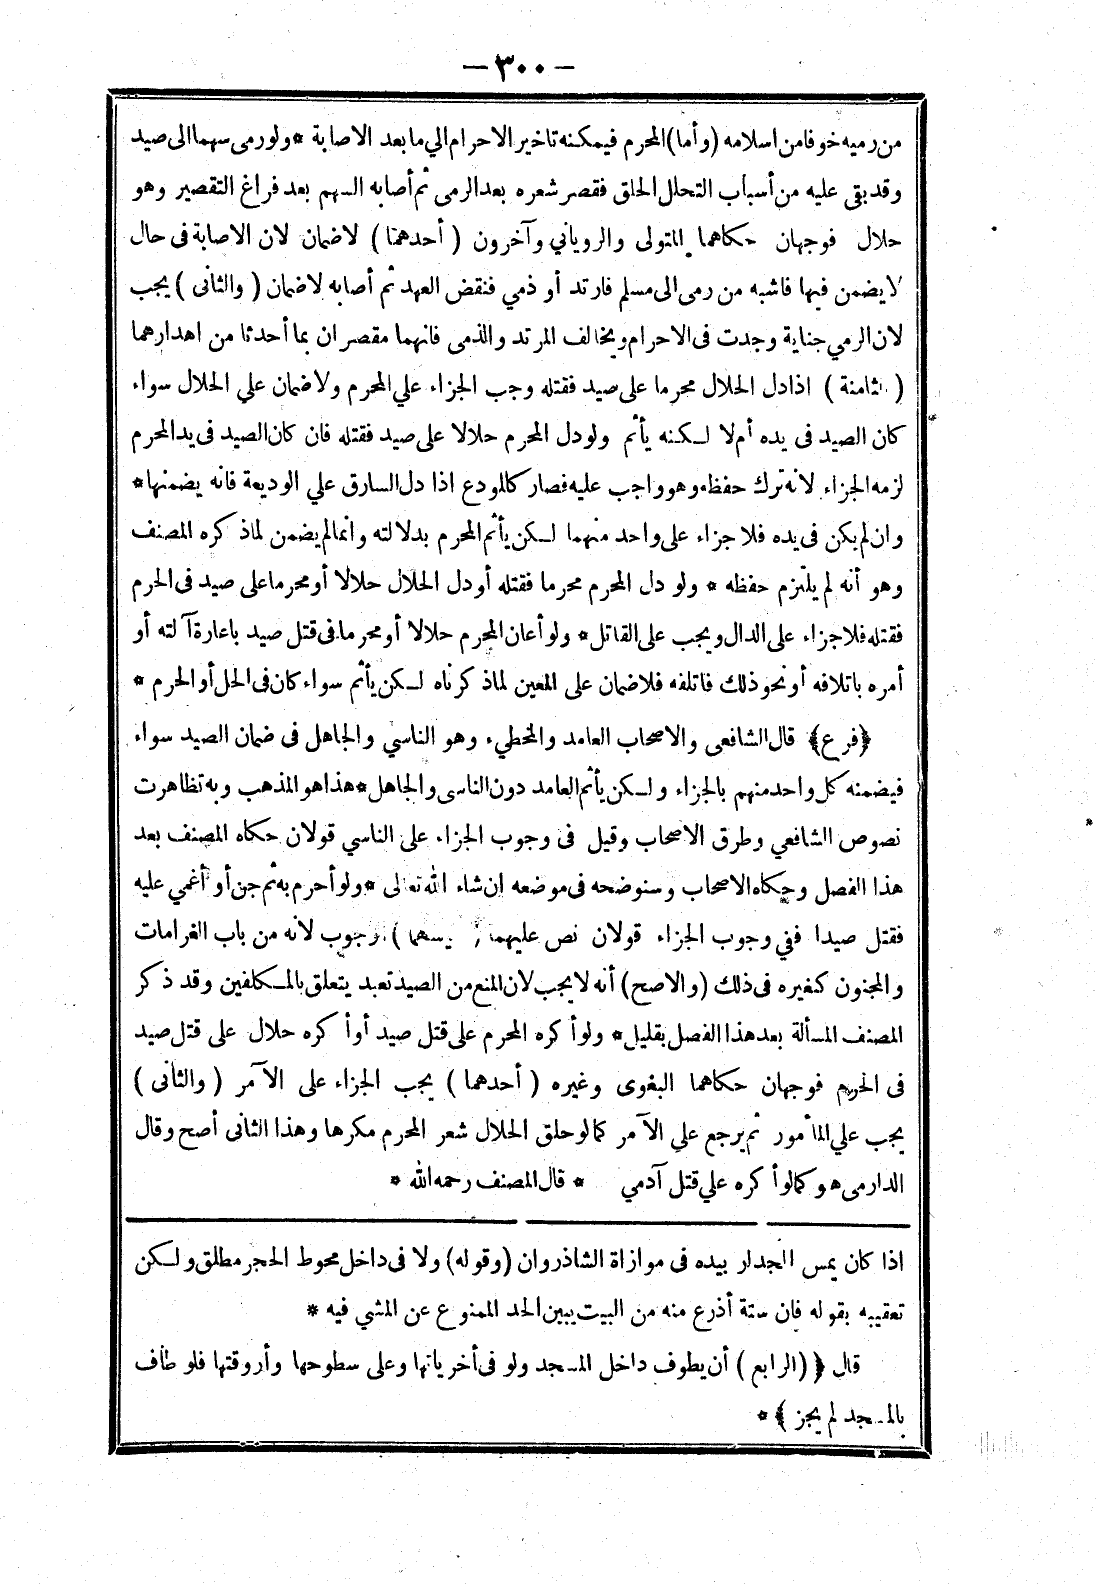 — ٣٠٠ —
من رميه خوفا من اسلامه (وأما) المحرم فيمكنه تاخير الاحرام الي ما بعد الاصابة * ولو رمى سهما الى صيد
وقد بقى عليه من أسباب التحلل الحلق فقصر شعره بعد الرمى ثم أصابه السهم بعد فراغ التقصير وهو
حلال فوجهان حكاهما المتولى والروياني وآخرون ( أحدهما ) لا ضمان لان الاصابة فى حال
لا يضمن فيها فاشبه من رمى الى مسلم فارتد أو ذمي فنقض العهد ثم أصابه لا ضمان ( والثانى ) يجب
لان الرمي جناية وجدت فى الاحرام ويخالف المرتد والذمى فانهما مقصران بما أحدثا من اهدارهما
( الثامنة ) اذا دل الحلال محرما على صيد فقتله وجب الجزاء علي المحرم ولا ضمان علي الحلال سواء
كان الصيد فى يده أم لا لكنه يأثم ولو دل المحرم حلالا على صيد فقتله فان كان الصيد فى يد المحرم
لزمه الجزاء لانه ترك حفظه وهو واجب عليه فصار كالمودع اذا دل السارق علي الوديعة فانه يضمنها *
وان لم يكن فى يده فلا جزاء على واحد منهما لكن يأثم المحرم بدلالته وانما لم يضمن لما ذكره المصنف
وهو أنه لم يلتزم حفظه * ولو دل المحرم محرما فقتله أو دل الحلال حلالا أو محرما على صيد فى الحرم
فقتله فلا جزاء على الدال ويجب على القاتل * ولو أعان المحرم حلالا أو محرما فى قتل صيد باعارة آلته أو
أمره باتلافه أو نحو ذلك فاتلفه فلا ضمان على المعين لما ذكرناه لكن يأثم سواء كان فى الحل أو الحرم *
﴿فرع﴾ قال الشافعى والاصحاب العامد والمخطيء وهو الناسي والجاهل فى ضمان الصيد سواء
فيضمنه كل واحد منهم بالجزاء ولكن يأثم العامد دون الناسى والجاهل * هذا هو المذهب وبه تظاهرت
نصوص الشافعي وطرق الاصحاب وقيل فى وجوب الجزاء على الناسي قولان حكاه المصنف بعد
هذا الفصل وحكاه الاصحاب وسنوضحه فى موضعه ان شاء الله تعالى * ولو أحرم به ثم جن أو أغمي عليه
فقتل صيدا ففي وجوب الجزاء قولان نص عليهما ( ) الوجوب لانه من باب الغرامات
والمجنون كغيره فى ذلك (والاصح) أنه لا يجب لان المنع من الصيد تعبد يتعلق بالمكلفين وقد ذكر
المصنف المسألة بعد هذا الفصل بقليل * ولو أكره المحرم على قتل صيد أو أكره حلال على قتل صيد
فى الحرم فوجهان حكاهما البغوى وغيره ( أحدهما ) يجب الجزاء على الآمر ( والثانى )
يجب علي المأمور ثم يرجع علي الآمر كما لو حلق الحلال شعر المحرم مكرها وهذا الثانى أصح وقال
الدارمى هو كما لو أكره علي قتل آدمي * قال المصنف رحمه الله *
اذا كان يمس الجدار بيده فى موازاة الشاذروان (وقوله) ولا فى داخل محوط الحجر مطلق ولكن
تعقيبه بقوله فان ستة أذرع منه من البيت يبين الحد الممنوع عن المشي فيه *
قال ﴿ (الرابع ) أن يطوف داخل المسجد ولو فى أخرياتها وعلى سطوحها وأروقتها فلو طاف
بالمسجد لم يجز ﴾ *